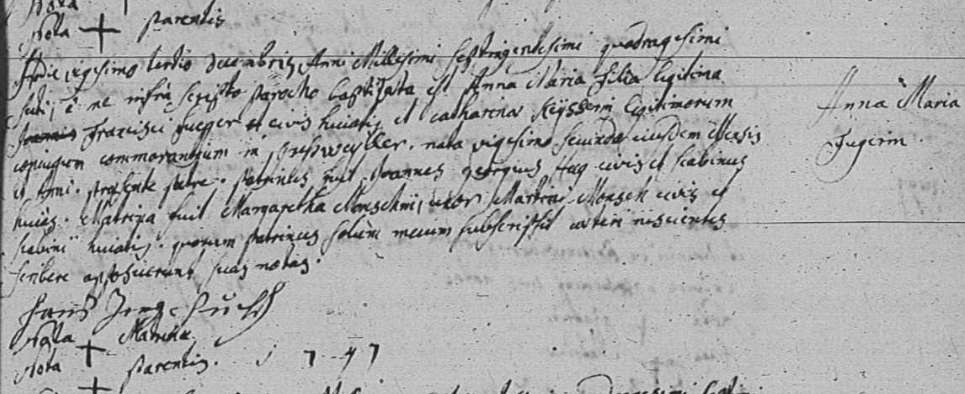 Nota
Nota + parentis
Hodie vigesimo tertio decembris, Anni Millesimi septingentesimi quadragesimi
sexti, à me infra scripto parocho baptizata est Anna Maria filia legitima
Francisci fueger et civis huiatis et catharinae legitimorum
coniugum commorantium in nata vigesimo secundo eiusdem Mensis
et Anni. praesente patre. patrinus fuit Joannes georgius Hug civis et scabinus
huias. Matrina fuit Margaretha uxor Martini Monsch civis et
scabini huiatis. quorum patrinus solùm mecum subscripsit caeteri nescientes
scribere apposuerunt suas notas.
Hans
Nota + Matrinae
Nota + parentis. 1747
Anna Maria
Fugerin